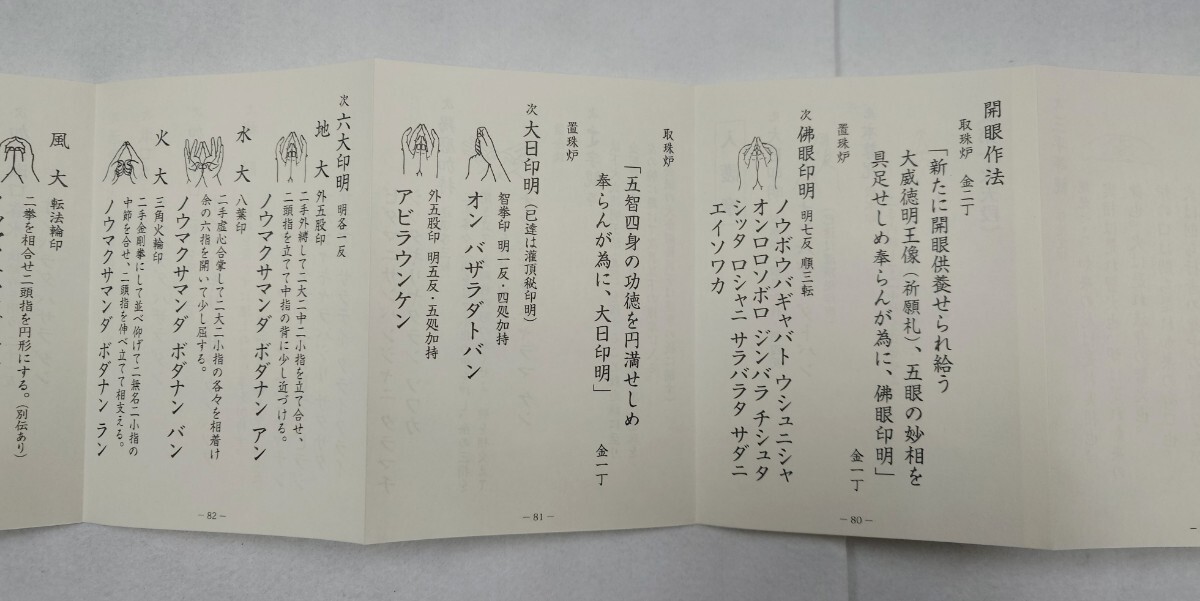 開眼作法
取珠炉 金二丁
「新たに開眼供養せられ給う
大威徳明王像（祈願札）、五眼の妙相を
具足せしめ奉らんが為に、佛眼印明」
金一丁
置珠炉
次 佛眼印明 明七反 順三転
ノウボウバギャバト ウシュニシャ
オンロロソボロ ジンバラ チシュタ
シッタ ロシャニ サラバラタ サダニ
エイソワカ
－80－
取珠炉
「五智四身の功徳を円満せしめ
奉らんが為に、大日印明」
金一丁
置珠炉
次 大日印明（已達は灌頂秘印明）
智拳印 明一反・四処加持
オン バザラダトバン
外五股印 明五反・五処加持
アビラウンケン
－81－
次 六大印明 明各一反
地大 外五股印
二手外縛して二大二中二小指を立て合せ、
二頭指を立てて中指の背に少し近づける。
ノウマクサマンダ ボダナン アン
水大 八葉印
二手虚心合掌して二大二小指の各々を相着け
余の六指を開いて少し屈する。
ノウマクサマンダ ボダナン バン
火大 三角火輪印
二手金剛拳にして並べ仰げて二無名二小指の
中節を合せ、二頭指を伸べ立てて相支える。
ノウマクサマンダ ボダナン ラン
－82－
風大 転法輪印
二拳を相合せ二頭指を円形にする。（別伝あり）